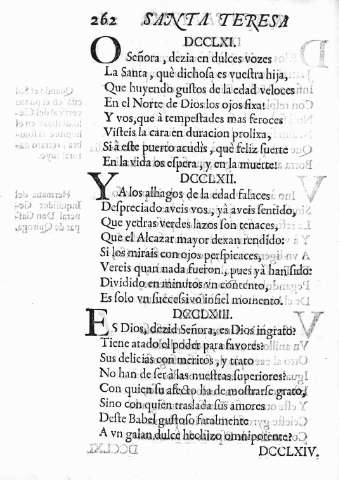 262 SANTA TERESA
DCCLXI.
O Señora, dezia en dulces vozes
La Santa, què dichosa es vuestra hija,
Que huyendo gustos de la edad veloces
En el Norte de Dios los ojos fixa!
Y vos, que à tempestades mas feroces
Visteis la cara en duracion prolixa,
Si à este puerto acudis, què feliz suerte
En la vida os espera, y en la muerte!
DCCLXII.
YA los alhagos de la edad falaces
Despreciado aveis vos, yà aveis sentido,
Que yedras verdes lazos son tenaces,
Que el Alcazar mayor dexan rendido:
Si los mirais con ojos perspicaces,
Vereis quan nada fueron, pues yà han sido:
Dividido en minutos vn contento,
Es solo vn successivo infiel momento.
DCCLXIII.
ES Dios, dezid Señora, es Dios ingrato?
Tiene atado el poder para favores?
Sus delicias con meritos, y trato
No han de ser à las nuestras superiores?
Con quien su afecto ha de mostrarse grato,
Sino con quien traslada sus amores
Deste Babel gustoso fatalmente
A vn galan dulce hechizo omnipotente?
DCCLXIV.